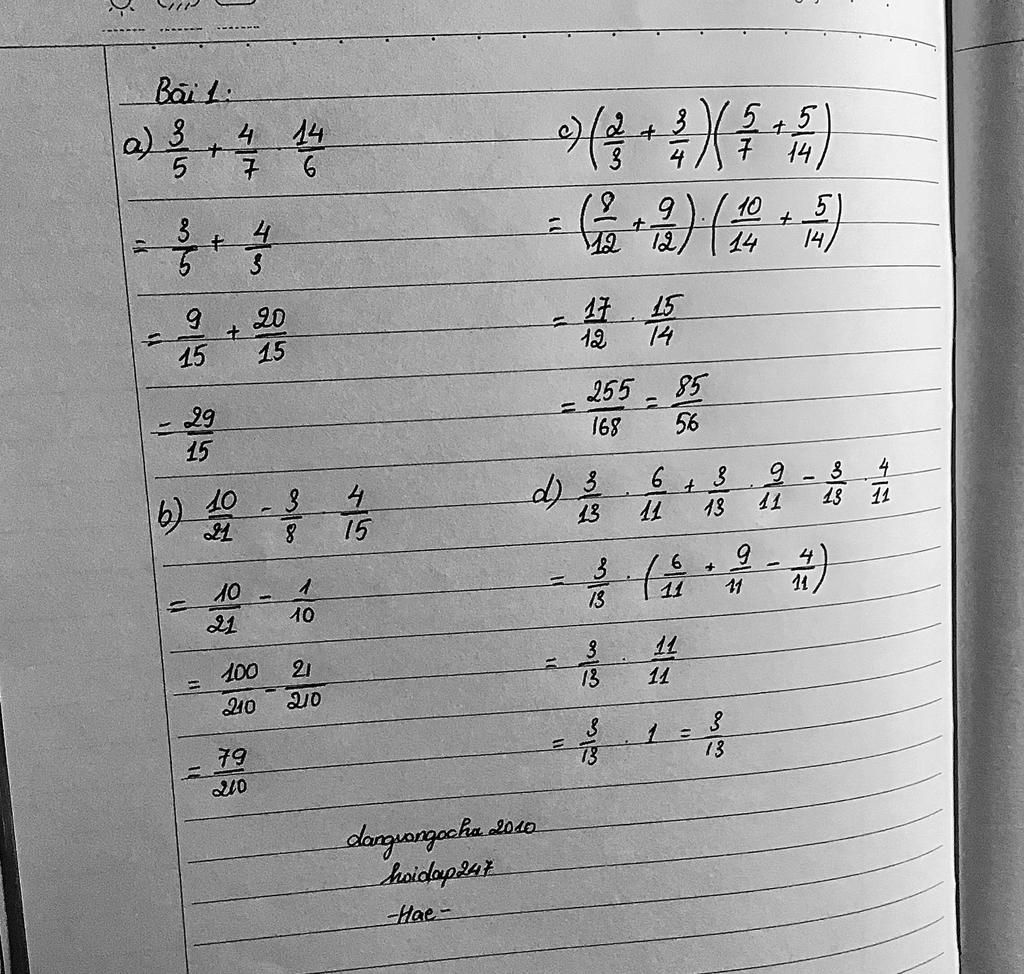 Bài 1:
a) 3/5 + 4/7 . 14/6
= 3/5 + 4/3
= 9/15 + 20/15
= 29/15
b) 10/21 - 3/8 . 4/15
= 10/21 - 1/10
= 100/210 - 21/210
= 79/210
c) (2/3 + 3/4)(5/7 + 5/14)
= (8/12 + 9/12) . (10/14 + 5/14)
= 17/12 . 15/14
= 255/168 = 85/56
d) 3/13 . 6/11 + 3/13 . 9/11 - 3/13 . 4/11
= 3/13 . (6/11 + 9/11 - 4/11)
= 3/13 . 11/11
= 3/13 . 1 = 3/13
hoidap247
-Hae-